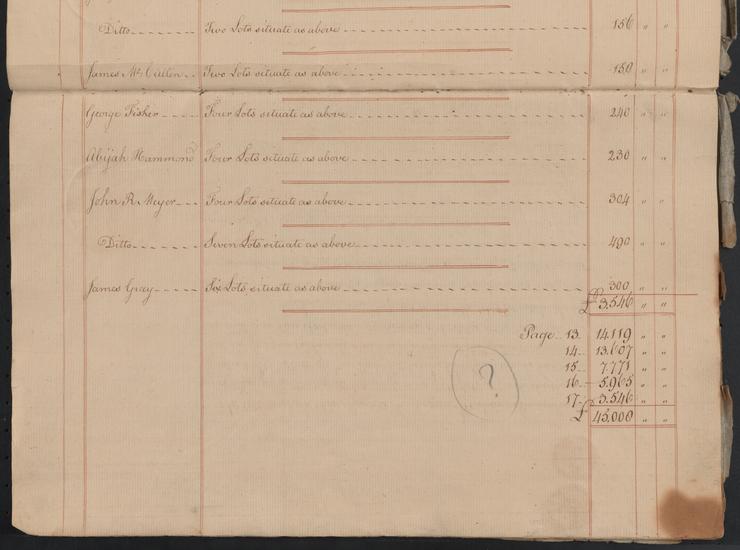 Ditto Two Lots situate as above 156 " "
James McCullen Two Lots situate as above 150 " "
George Fisher Four Lots situate as above 240 " "
Abijah Hammond Four Lots situate as above 230 " "
John R. Meyer Four Lots situate as above 304 " "
Ditto Seven Lots situate as above 490 " "
James Gray Six Lots situate as above 300 " "
£ 3.546 " "
Page 13 14.119 " "
14 13.607 " "
15 7.771 " "
16 5.965 " "
17 3.546 " "
£ 45,000 " "
?